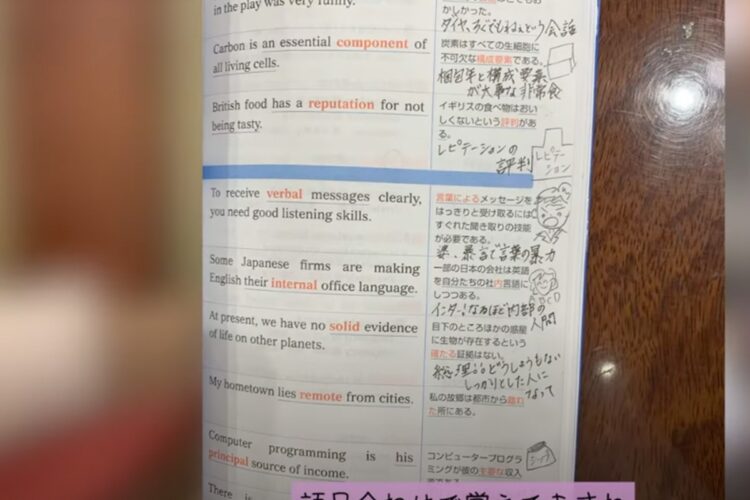 in the play was very funny.
かしかった。
Carbon is an essential component of
all living cells.
炭素はすべての生細胞に
不可欠な構成要素である。
が大事な非常食
British food has a reputation for not
being tasty.
イギリスの食べ物はおい
しくないという評判があ
る。
レピテーションの
評判
レピテー
ション
To receive verbal messages clearly,
you need good listening skills.
言葉によるメッセージを
はっきりと受け取るには
すぐれた聞き取りの技能
が必要である。
で言葉の暴力
Some Japanese firms are making
English their internal office language.
一部の日本の会社は英語
を自分たちの社内言語に
しつつある。
ABCD
インター!なかほど内部の
人間
At present, we have no solid evidence
of life on other planets.
目下のところほかの惑星
に生物が存在するという
確たる証拠はない。
どうしようもない
しっかりとした人に
なって
My hometown lies remote from cities.
私の故郷は都市から離れ
た所にある。
Computer programming is his
principal source of income.
コンピュータープログラ
ミングが彼の主要な収入
There is